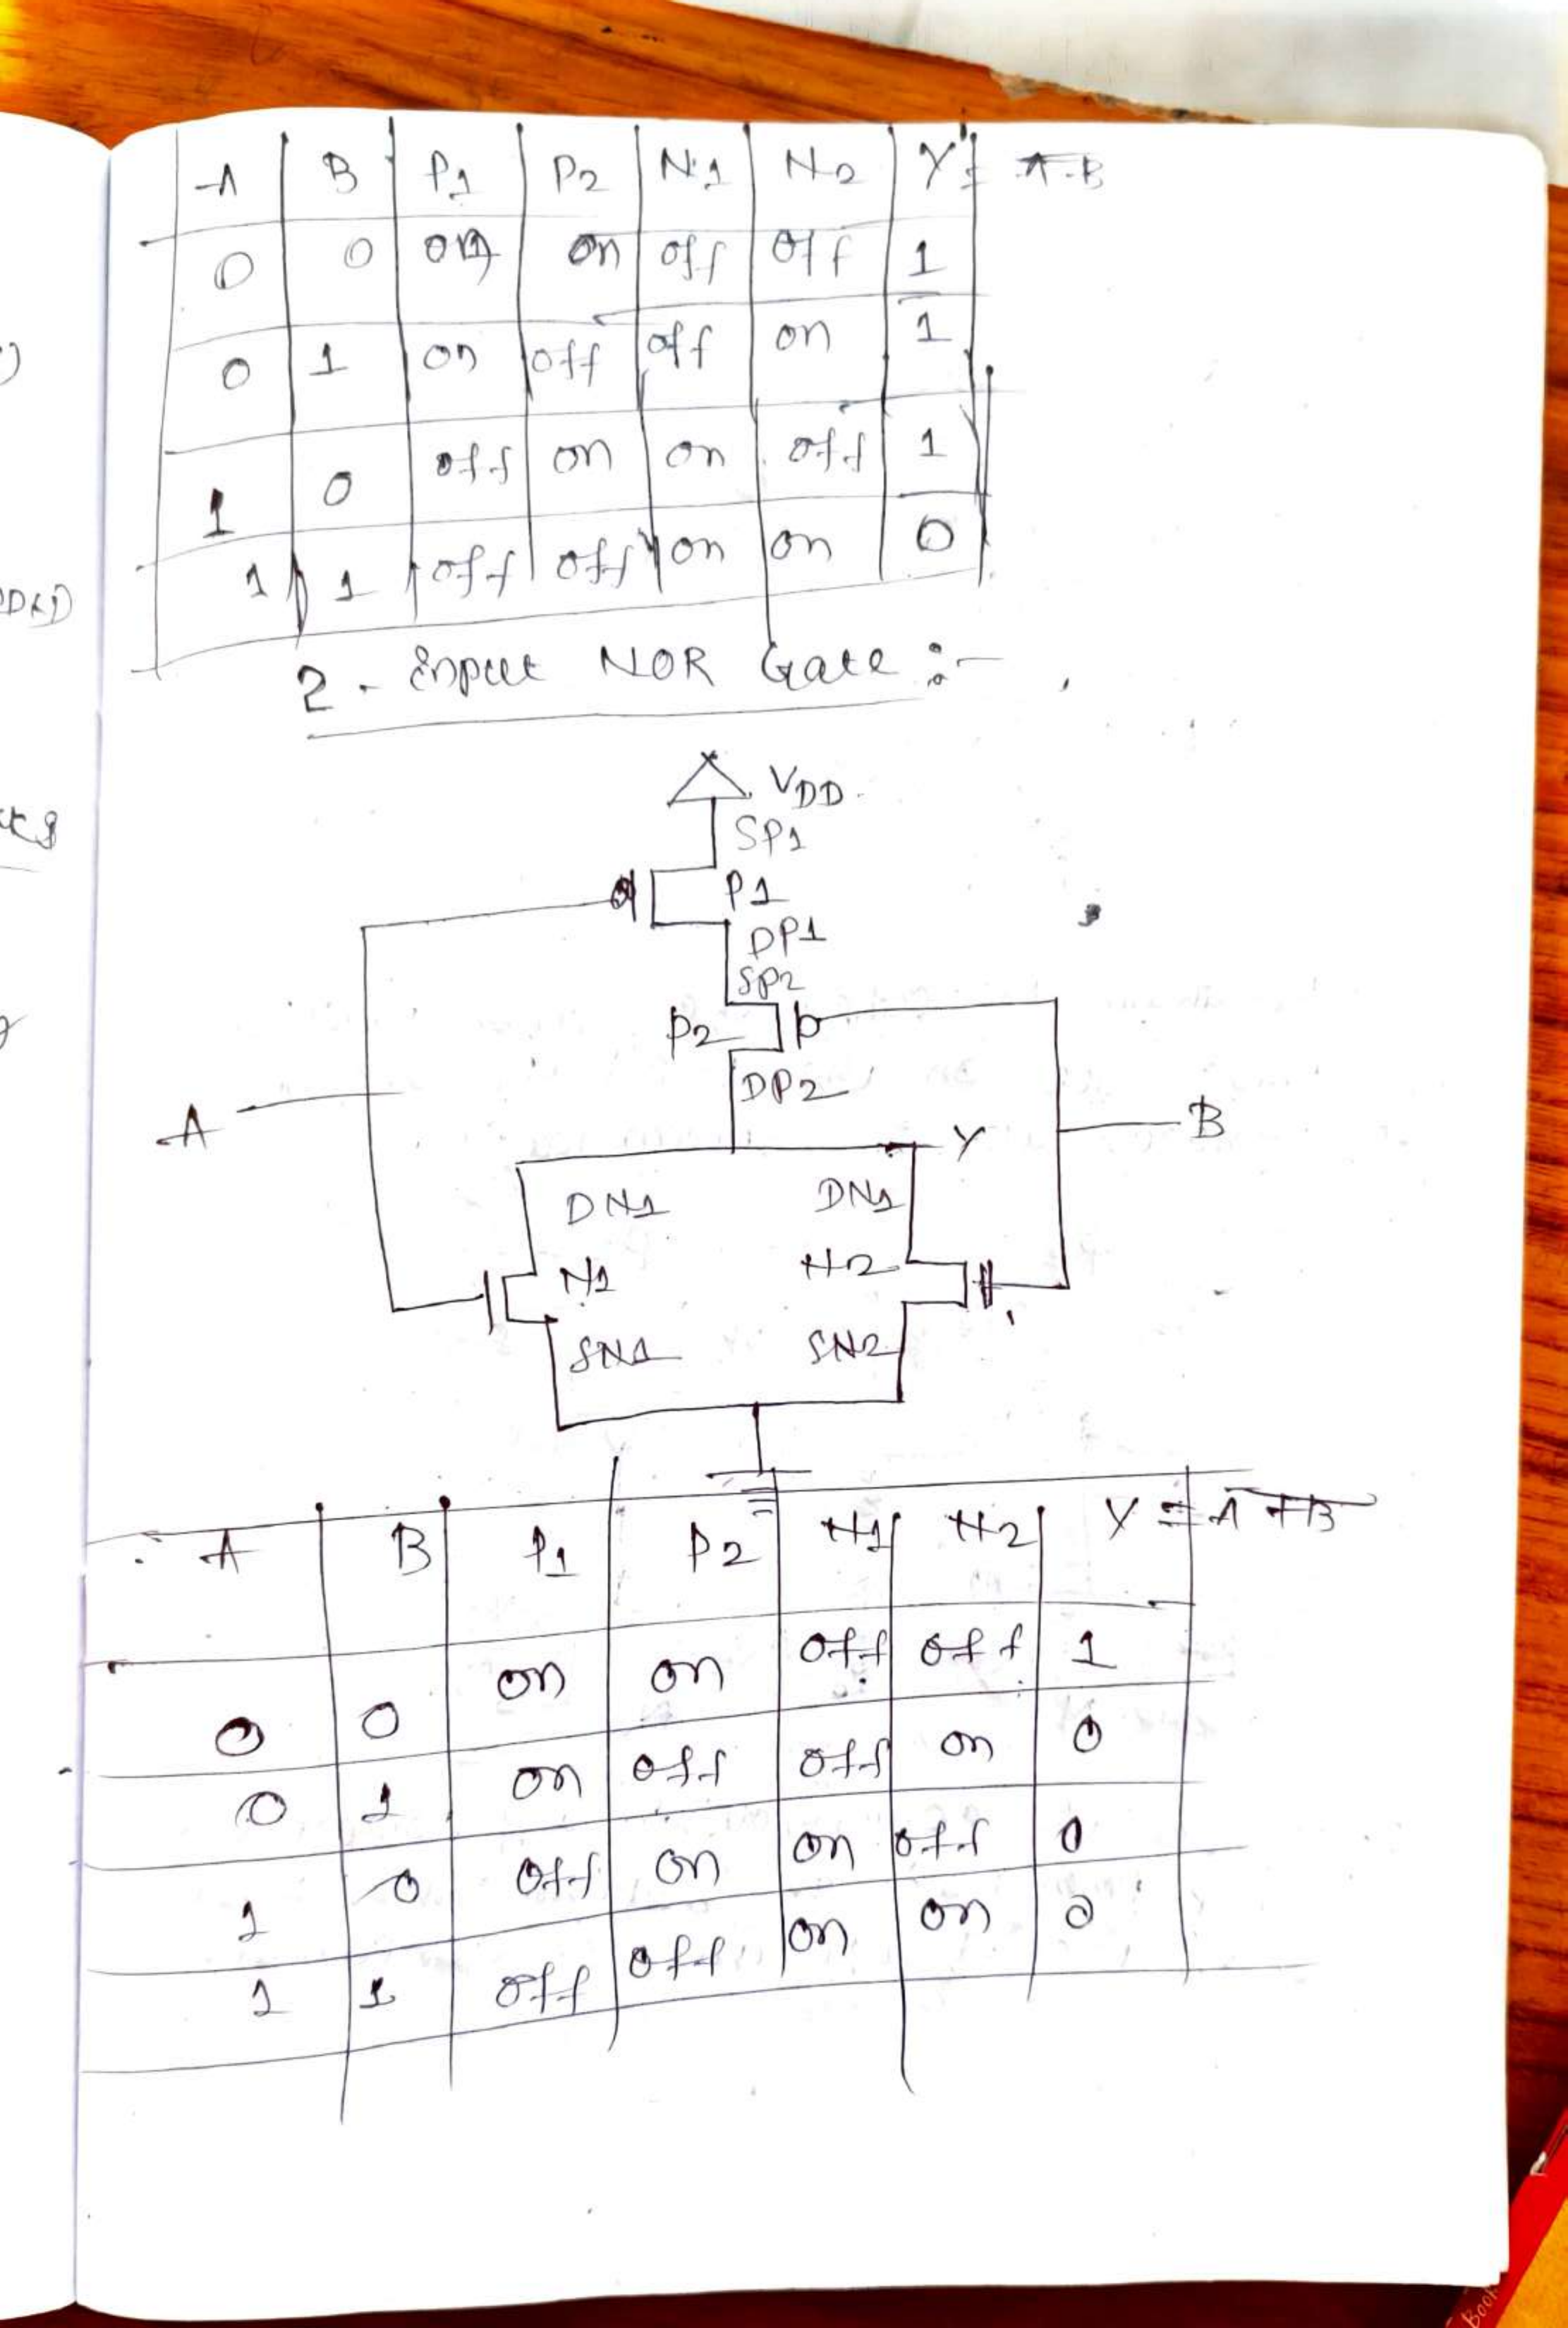 A B P1 P2 N1 N2 Y = A.B
0 0 on on off off 1
0 1 on off off on 1
1 0 off on on off 1
1 1 off off on on 0
2 - Input NOR Gate :-
VDD
SP1
P1
DP1
SP2
P2
DP2
A
B
Y
DN1 DN1
N1 N2
SN1 SN2
A B P1 P2 N1 N2 Y = A+B
0 0 on on off off 1
0 1 on off off on 0
1 0 off on on off 0
1 1 off off on on 0